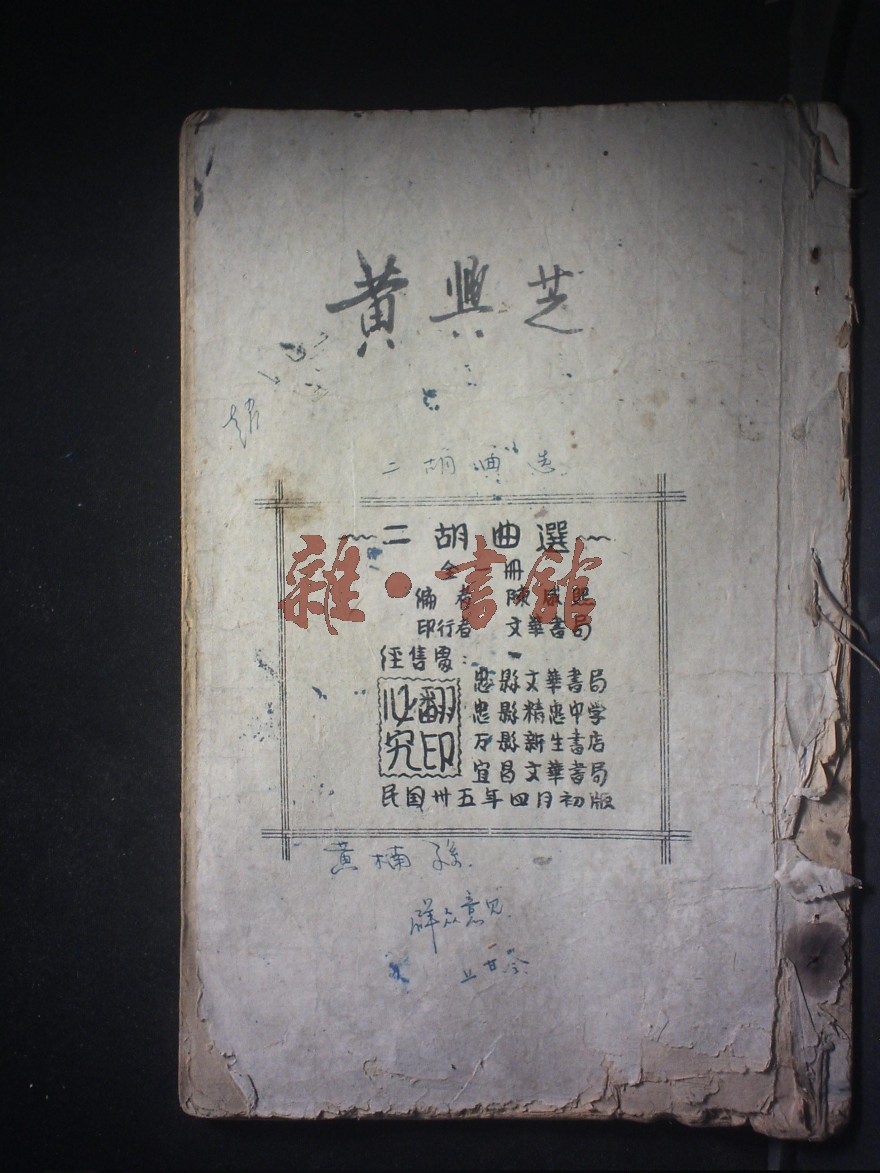 黄興芝
二胡曲选
二胡曲選
全一册
編者 陳咸熙
印行者 文華書局
經售處：
忠县文華書局
忠县精忠中学
万县新生書店
宜昌文華書局
翻印
必究
民国卅五年四月初版
雜·書館
黄楠
群众意见